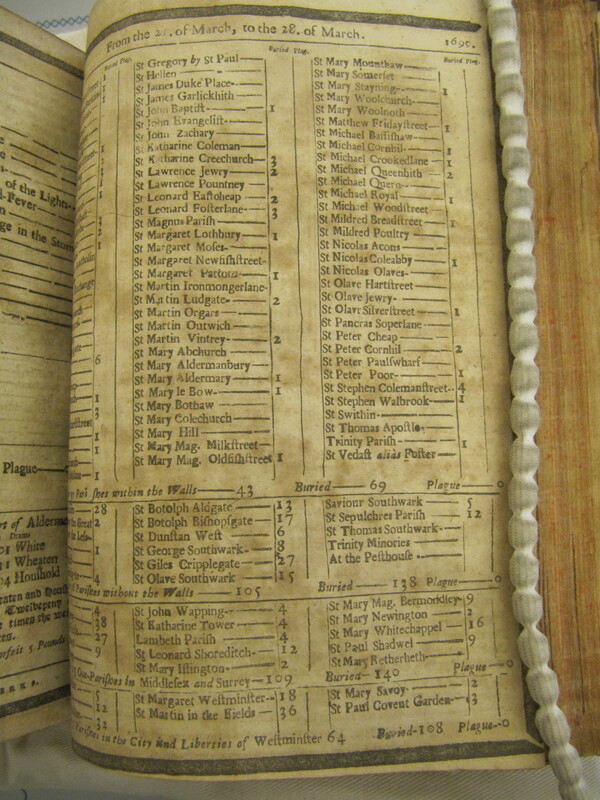 From the 21. of March, to the 28. of March. 1690.
Buried Plag.
Buried Plag.
Buried Plag.
St Gregory by St Paul
St Hellen
St James Duke Place
St James Garlickhith
St John Baptist 1
St John Evangelist
St John Zachary
St Katharine Coleman
St Katharine Creechurch 3
St Lawrence Jewry 2
St Lawrence Pountney
St Leonard Eastcheap 2
St Leonard Fosterlane 3
St Magnus Parish
St Margaret Lothbury 1
St Margaret Moses
St Margaret Newfishstreet
St Margaret Pattons 1
St Martin Ironmongerlane
St Martin Ludgate 2
St Martin Orgars
St Martin Outwich
St Martin Vintrey 2
St Mary Abchurch
St Mary Aldermanbury
St Mary Aldermary 1
St Mary le Bow 1
St Mary Bothaw
St Mary Colechurch
St Mary Hill
St Mary Mag. Milkstreet
St Mary Mag. Oldfishstreet 1
St Mary Mounthaw
St Mary Somerset
St Mary Stayning 1
St Mary Woolchurch
St Mary Woolnoth
St Matthew Fridaystreet 1
St Michael Bassishaw
St Michael Cornhil 1
St Michael Crookedlane 1
St Michael Queenhith 2
St Michael Quern
St Michael Royal 1
St Michael Woodstreet
St Mildred Breadstreet 1
St Mildred Poultry
St Nicolas Acons
St Nicolas Coleabby 1
St Nicolas Olaves
St Olave Hartstreet
St Olave Jewry
St Olave Silverstreet 1
St Pancras Soperlane
St Peter Cheap
St Peter Cornhil 2
St Peter Paulswharf
St Peter Poor 1
St Stephen Colemanstreet 4
St Stephen Walbrook 1
St Swithin
St Thomas Apostle
Trinity Parish 1
St Vedast alias Foster
within the Walls 43 Buried 69 Plague 0
St Botolph Aldgate 13
St Botolph Bishopsgate 17
St Dunstan West 6
St George Southwark 8
St Giles Cripplegate 27
St Olave Southwark 15
Saviour Southwark 5
St Sepulchres Parish 12
St Thomas Southwark
Trinity Minories
At the Pesthouse
without the Walls 105 Buried 138 Plague 0
St John Wapping 4
St Katharine Tower 4
Lambeth Parish 4
St Leonard Shoreditch 12
St Mary Islington 2
St Mary Mag. Bermondsey 9
St Mary Newington 2
St Mary Whitechappel 16
St Paul Shadwel 9
St Mary Retherheth
in Middlesex and Surrey 109 Buried 140 Plague 0
St Margaret Westminster 18
St Martin in the Fields 36
St Mary Savoy 2
St Paul Covent Garden 13
Parishes in the City and Liberties of Westminster 64 Buried 108 Plague 0